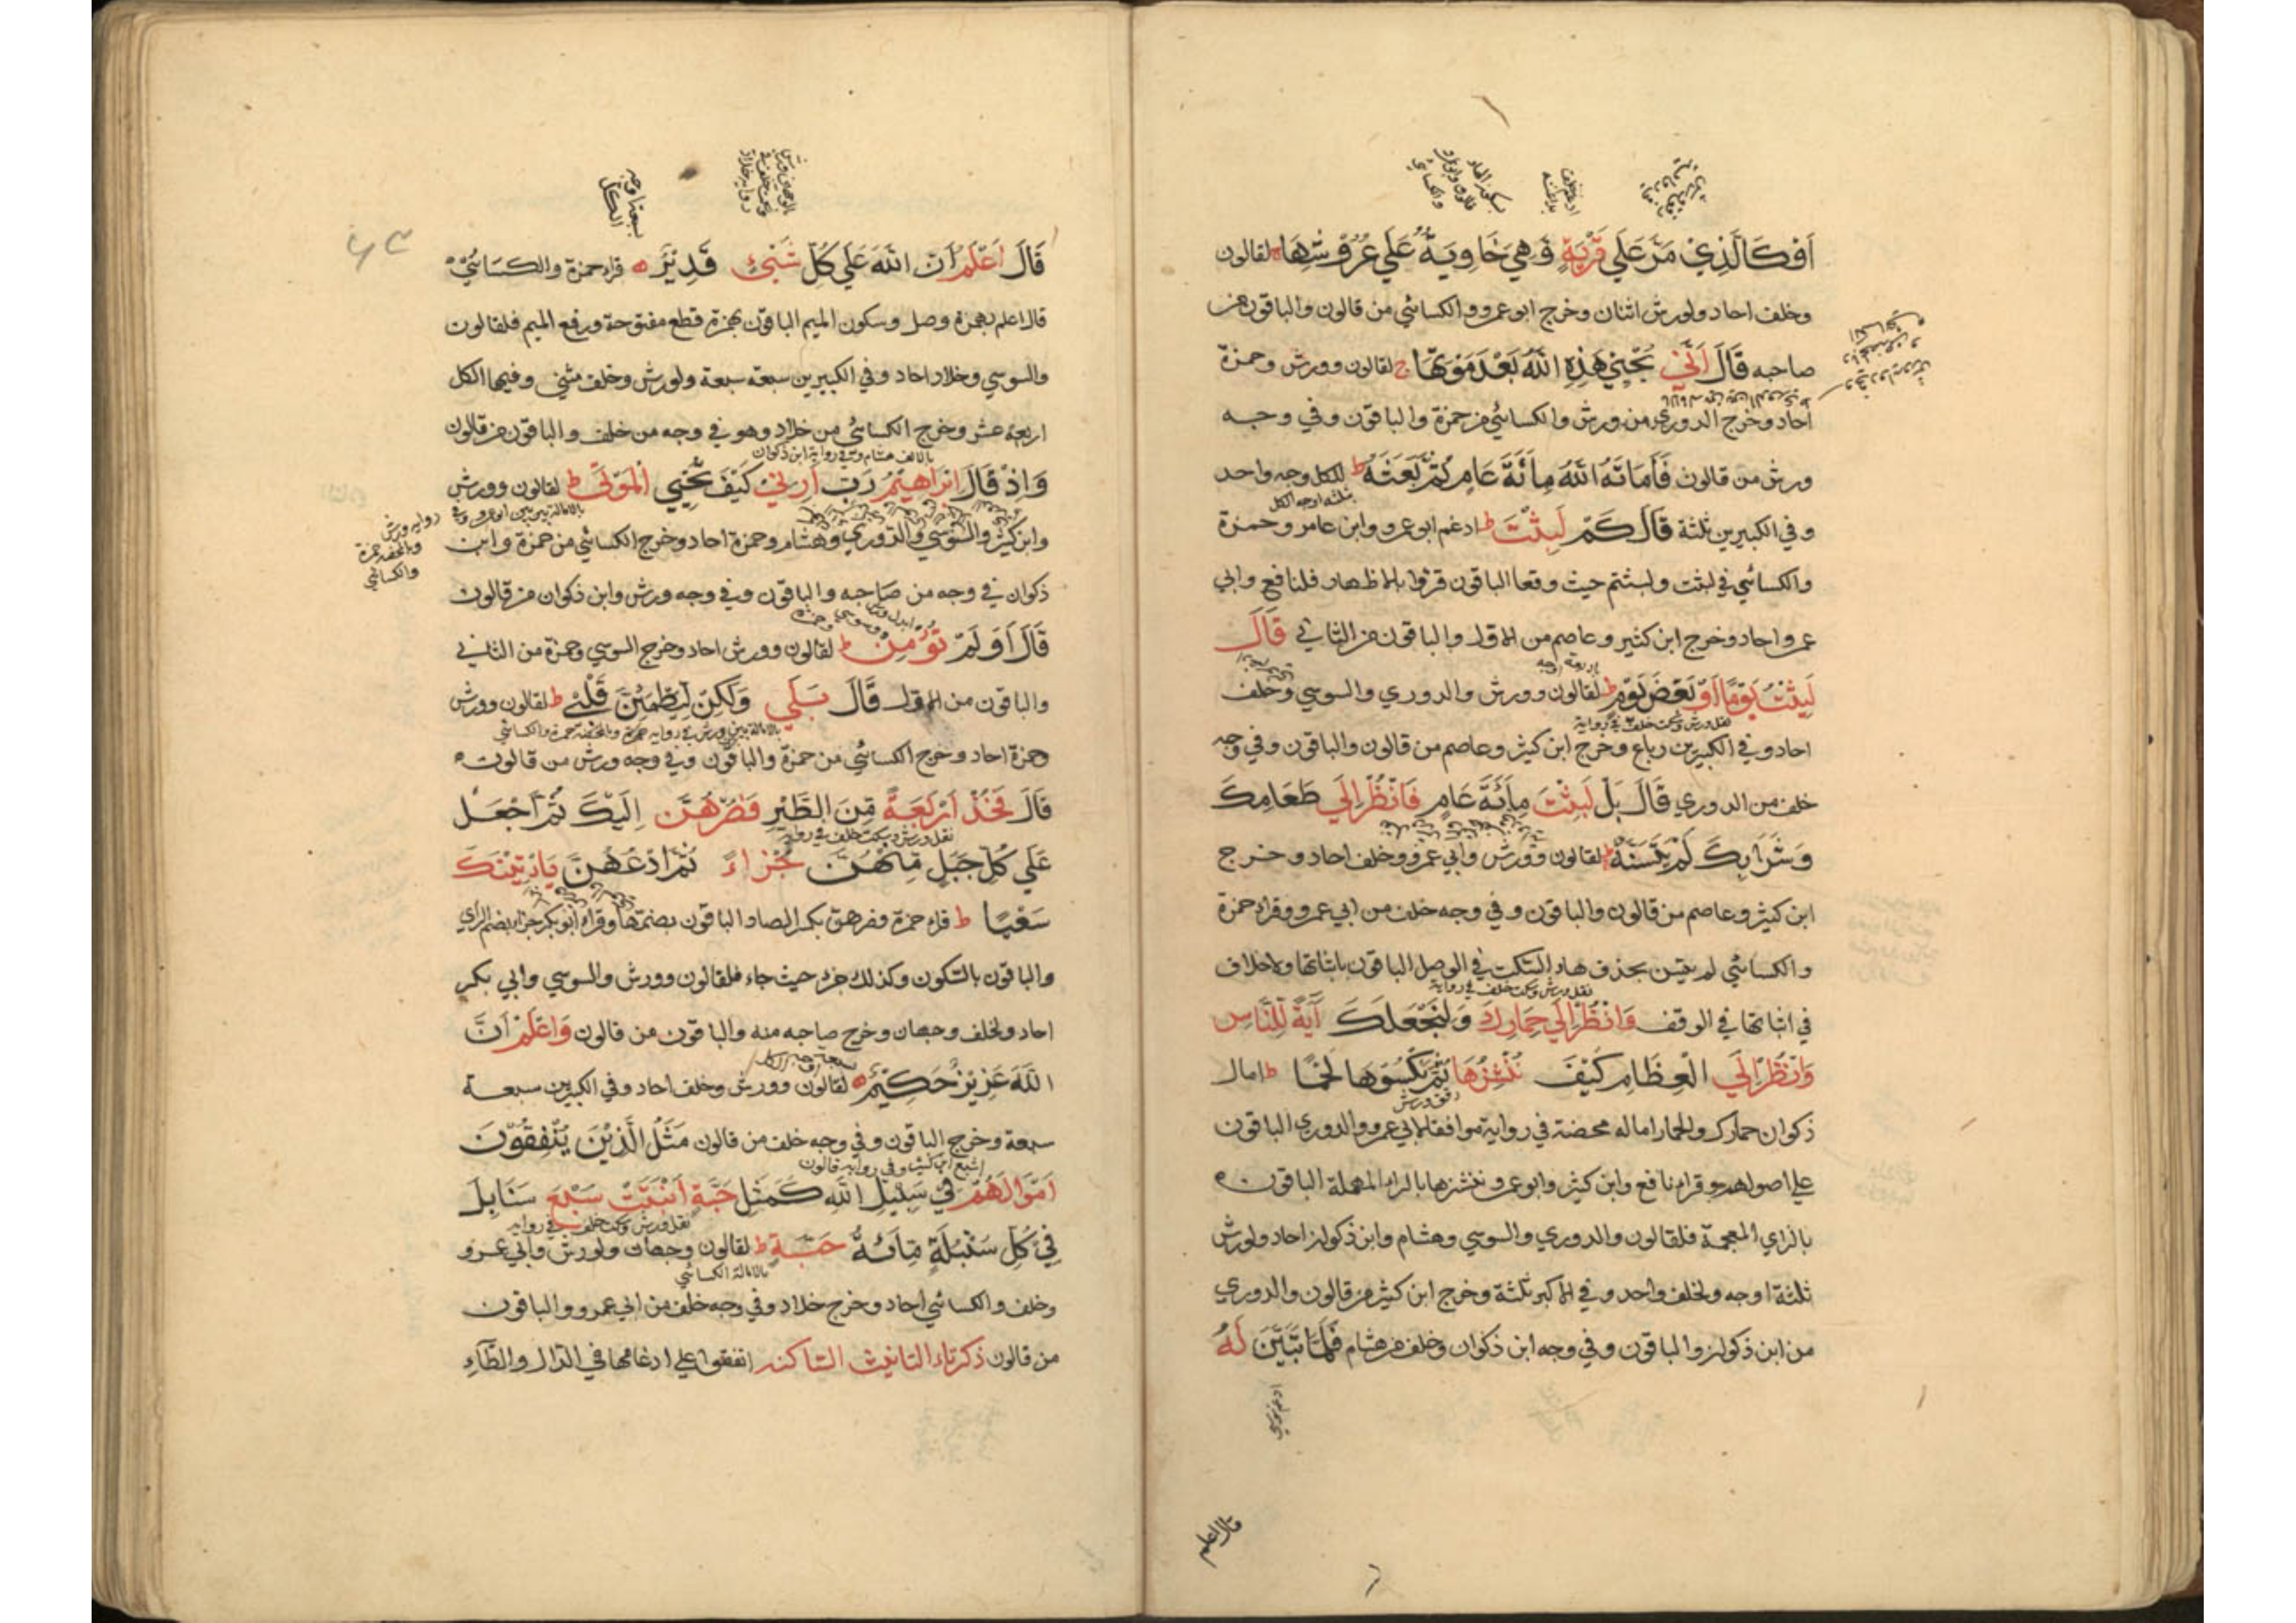 اَوْ كَالَّذِيْ مَرَّ عَلَي قَرْيَةٍ وَهِيَ خَاوِيَةٌ عَلَي عُرُوْشِهَا لقالون
وخلف احاد ولورش اثنان وخرج ابو عمرو والكسائي من قالون والباقون من
صاحبه قَالَ اَنّٰي يُحْيِيْ هٰذِهِ اللّٰهُ بَعْدَ مَوْتِهَا ج لقالون وورش وحمزة
احاد وخرج الدوري من ورش والكسائي من حمزة والباقون وفي وجه
ورش من قالون فَاَمَاتَهُ اللّٰهُ مِائَةَ عَامٍ ثُمَّ بَعَثَهُ ط للكل وجه واحد
ثلثة اوجه الكل
وفي الكبيرين ثلثة قَالَ كَمْ لَبِثْتَ ط ادغم ابو عمرو وابن عامر وحمزة
والكسائي في لبثت ولبثتم حيث وقعا الباقون قرؤا بالاظهار فلنافع وابي
عمرو احاد وخرج ابن كثير وعاصم من الاول والباقون من الثاني قَالَ
لَبِثْتُ يَوْمًا اَوْ بَعْضَ يَوْمٍ ط لقالون وورش والدوري والسوسي وخلف
نقل ورش وسكت خلف في رواية
احاد وفي الكبيرين رباع وخرج ابن كثير وعاصم من قالون والباقون وفي وجه
خلف من الدوري قَالَ بَلْ لَبِثْتَ مِائَةَ عَامٍ فَانْظُرْ اِلَي طَعَامِكَ
وَشَرَابِكَ لَمْ يَتَسَنَّهْ ط لقالون وورش وابي عمرو وخلف احاد وخرج
ابن كثير وعاصم من قالون والباقون وفي وجه خلف من ابي عمرو وقراء حمزة
والكسائي لم يتسن بحذف هاء السكت في الوصل الباقون باثباتها ولاخلاف
نقل ورش وسكت خلف في رواية
في اثباتها في الوقف وَانْظُرْ اِلَي حِمَارِكَ وَلِنَجْعَلَكَ آيَةً لِلنَّاسِ
وَانْظُرْ اِلَي الْعِظَامِ كَيْفَ نُنْشِزُهَا ثُمَّ نَكْسُوهَا لَحْمًا ط امال
رقق ورش
ذكوان حمارك والحمار اماله محضة في رواية موافقا لابي عمرو والدوري الباقون
علي اصولهم وقراء نافع وابن كثير وابو عمرو ننشرها بالراء المهملة الباقون
بالزاي المعجمة فلقالون والدوري والسوسي وهشام وابن ذكوان احاد ولورش
ثلثة اوجه ولخلف واحد وفي الاكبر ثلثة وخرج ابن كثير من قالون والدوري
من ابن ذكوان والباقون وفي وجه ابن ذكوان وخلف من هشام فَلَمَّا تَبَيَّنَ لَهُ
قال اعلم
سبعة اوجه
الكل
قَالَ اَعْلَمُ اَنَّ اللّٰهَ عَلَي كُلِّ شَيْئٍ قَدِيْرٌ قراء حمزة والكسائي
قال اعلم بهمزة وصل وسكون الميم الباقون بهمزة قطع مفتوحة ورفع الميم فلقالون
والسوسي وخلاد احاد وفي الكبيرين سبعة سبعة ولورش وخلف مثني وفيها الكل
اربعة عشر وخرج الكسائي من خلاد وهو في وجه من خلف والباقون من قالون
بالالف هشام وفي رواية ابن ذكوان
وَاِذْ قَالَ اِبْرَاهِيْمُ رَبِّ اَرِنِيْ كَيْفَ تُحْيِي الْمَوْتٰي ط لقالون وورش
وابن كثير والسوسي والدوري وهشام وحمزة احاد وخرج الكسائي من حمزة وابن
رواية ورش
وبالمحضة حمزة
والكسائي
ذكوان في وجه من صاحبه والباقون وفي وجه ورش وابن ذكوان من قالون
قَالَ اَوَلَمْ تُؤْمِنْ ط لقالون وورش احاد وخرج السوسي وحمزة من الثاني
والباقون من الاول قَالَ بَلَي وَلٰكِنْ لِيَطْمَئِنَّ قَلْبِيْ ط لقالون وورش
حمزة احاد وخرج الكسائي من حمزة والباقون وفي وجه ورش من قالون
قَالَ فَخُذْ اَرْبَعَةً مِنَ الطَّيْرِ فَصُرْهُنَّ اِلَيْكَ ثُمَّ اجْعَلْ
نقل ورش وسكت خلف في رواية
عَلَي كُلِّ جَبَلٍ مِنْهُنَّ جُزْاءً ثُمَّ ادْعُهُنَّ يَأْتِيْنَكَ
سَعْيًا ط قراء حمزة فصرهن بكسر الصاد الباقون بضمها وقراء ابو بكر جزاء بضم الزاي
والباقون بالسكون وكذلك جزء حيث جاء فلقالون وورش والسوسي وابي بكر
احاد ولخلف وجهان وخرج صاحبه منه والباقون من قالون وَاعْلَمْ اَنَّ
اللّٰهَ عَزِيْزٌ حَكِيْمٌ لقالون وورش وخلف احاد وفي الكبيرين سبعة
سبعة وخرج الباقون وفي وجه خلف من قالون مَثَلُ الَّذِيْنَ يُنْفِقُوْنَ
اشبع ابن كثير وفي رواية قالون
اَمْوَالَهُمْ فِيْ سَبِيْلِ اللّٰهِ كَمَثَلِ حَبَّةٍ اَنْبَتَتْ سَبْعَ سَنَابِلَ
نقل ورش وسكت خلف في رواية
فِيْ كُلِّ سُنْبُلَةٍ مِائَةُ حَبَّةٍ ط لقالون وجهان ولورش وابي عمرو
بالامالة الكسائي
وخلف والكسائي احاد وخرج خلاد وفي وجه خلف من ابي عمرو والباقون
من قالون ذكر تاء التانيث الساكنه اتفقوا علي ادغامها في الدال والطاء